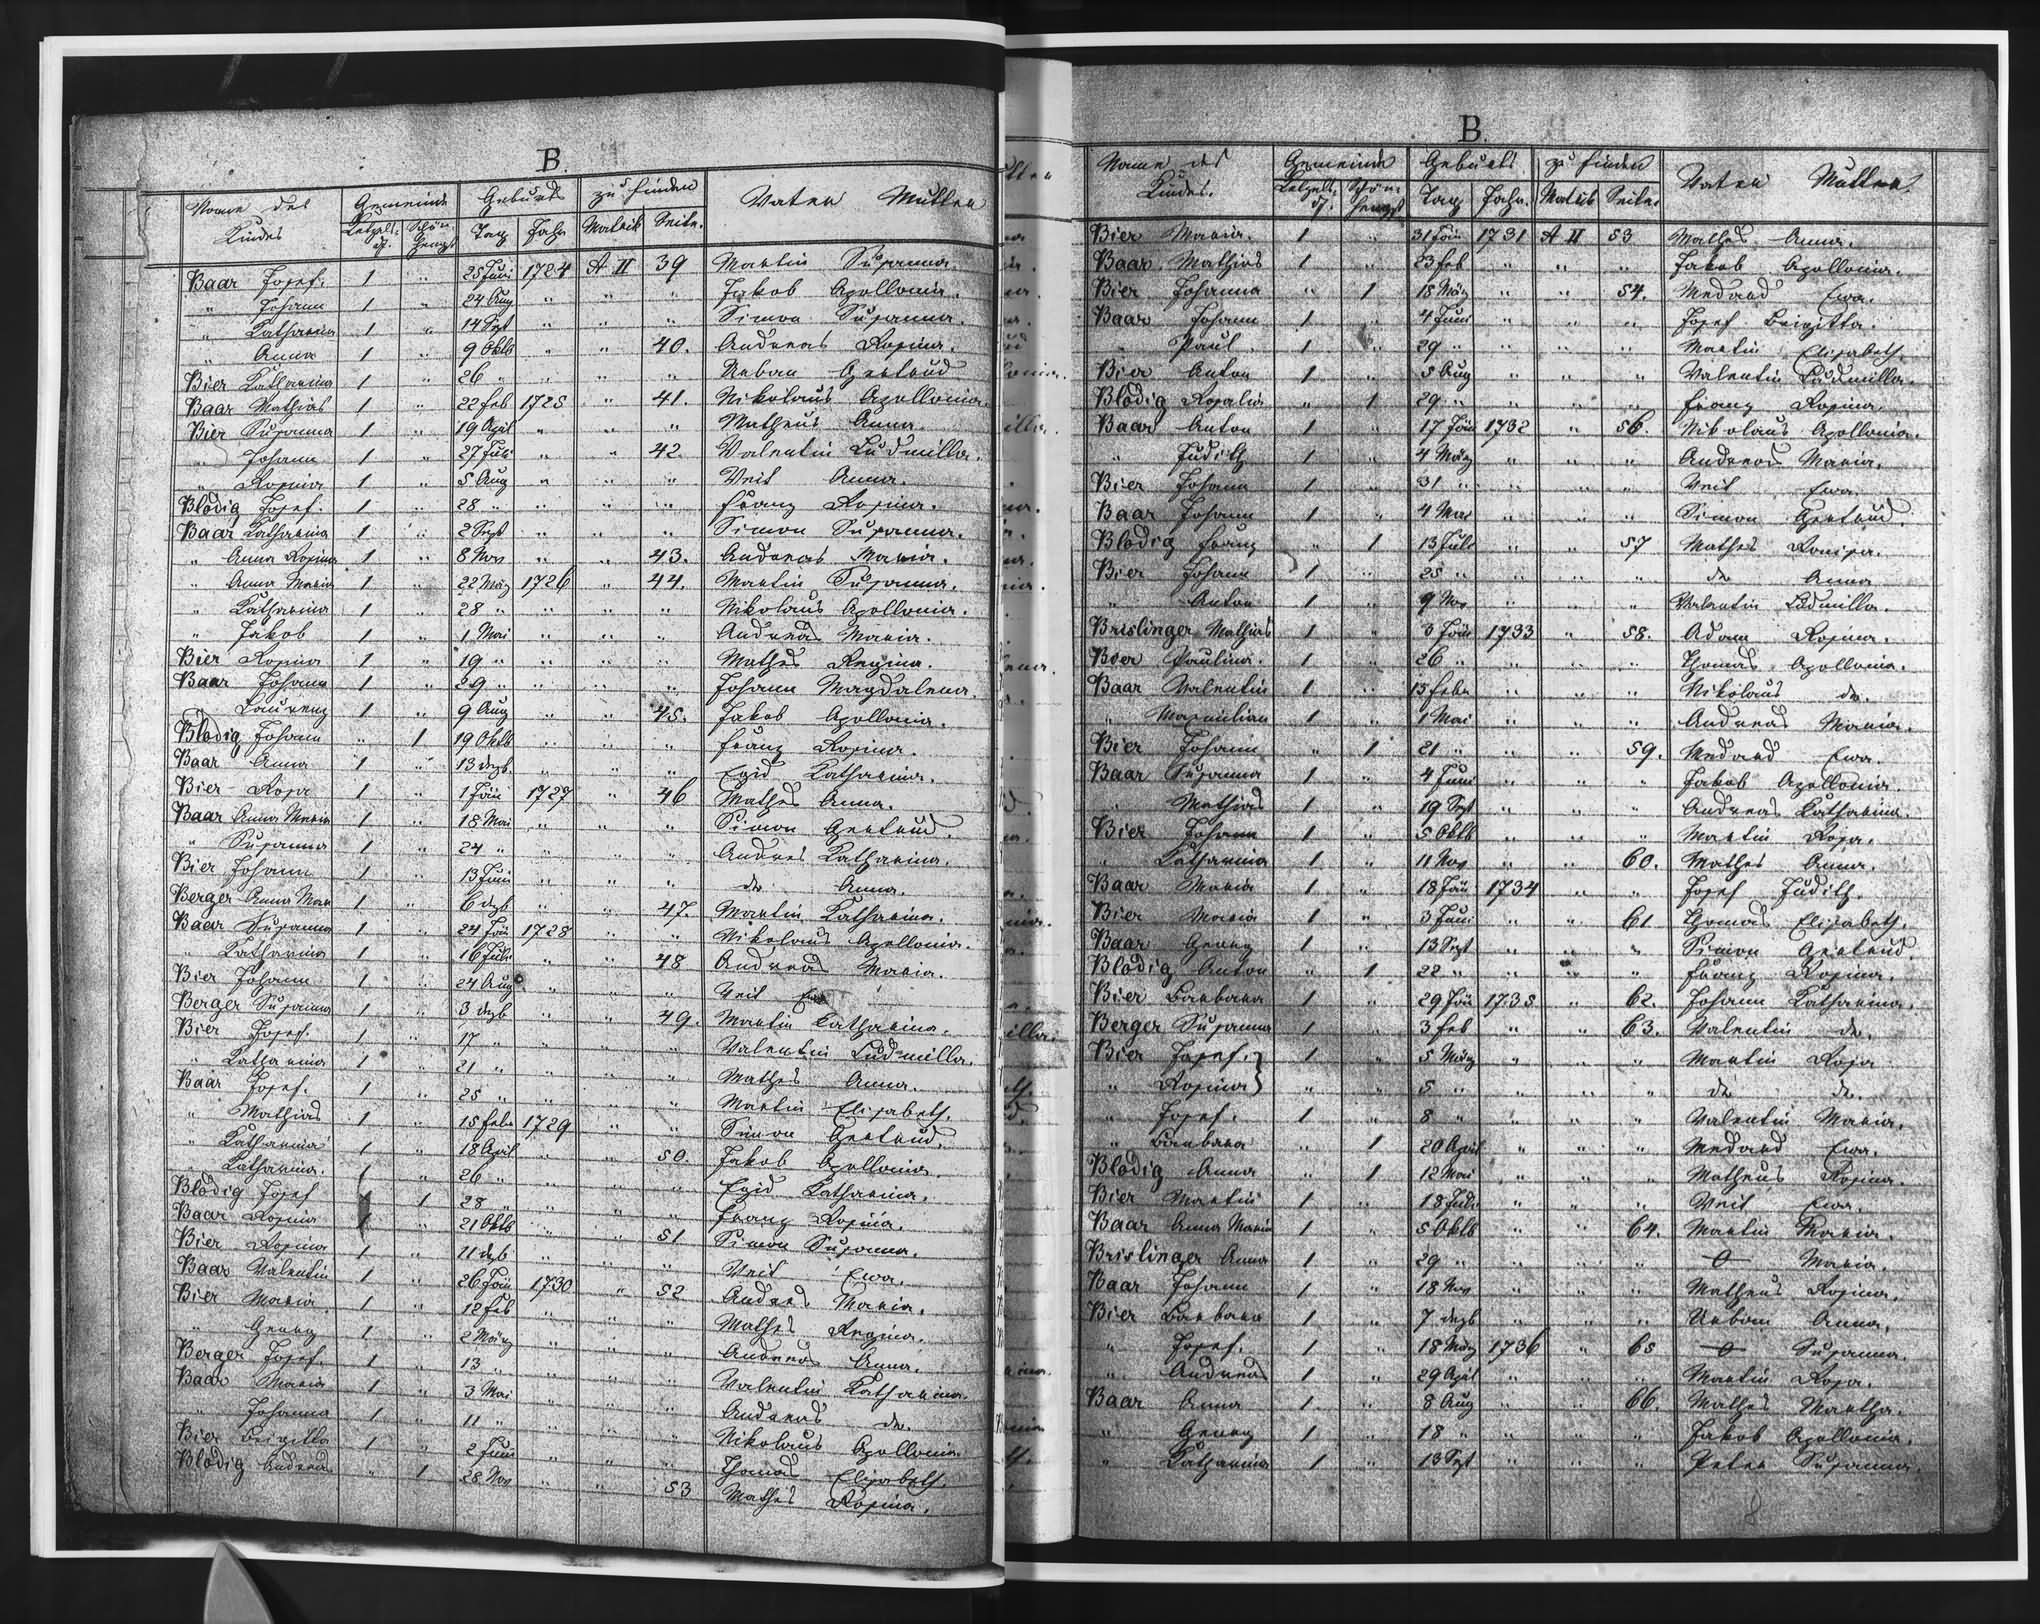 B.
Name des Kindes Gemeinde Geburts zu finden Vater Mutter
Ketzels- df. Schön- hengst Tag Jahr Matrik Seite.
Baar Josef. 1 " 25 Juni 1724 A II 39 Martin Susanna.
" Johann 1 " 24 Aug " " " Jakob Apollonia.
" Katharina 1 " 14 Sept " " " Simon Susanna
" Anna 1 " 9 Oktb " " 40. Andreas Rosina.
Bier Katharina 1 " 26 " " " " Urban Gertrud
Baar Mathias 1 " 22 Feb 1725 " 41. Nikolaus Apollonia.
Bier Susanna 1 " 19 April " " " Matheus Anna.
" Johann 1 " 27 Juli " " 42 Valentin Ludmilla.
" Rosina 1 " 5 Aug " " " Veit Anna.
Blodig Josef. 1 " 28 " " " " Franz Rosina.
Baar Katharina 1 " 2 Sept " " " Simon Susanna.
" Anna Rosina 1 " 8 Nov " " 43. Andreas Maria.
" Anna Maria 1 " 22 März 1726 " 44. Martin Susanna.
" Katharina 1 " 28 " " " " Nikolaus Apollonia.
" Jakob 1 " 1 Mai " " " Andreas Maria.
Bier Rosina 1 " 19 " " " " Mathes Regina.
Baar Johann 1 " 29 " " " " Johann Magdalena.
" Laurenz 1 " 9 Aug " " 45. Jakob Apollonia.
Blodig Johann " 1 19 Oktb " " " Franz Rosina.
Baar Anna 1 " 13 dezb " " " Egid Katharina.
Bier Rosa 1 " 1 Jän 1727 " 46 Mathes Anna.
Baar Anna Maria 1 " 18 Mai " " " Simon Gertrud.
" Susanna 1 " 24 " " " " Andres Katharina.
Bier Johann 1 " 13 Juni " " " do Anna.
Berger Anna Mar 1 " 6 dezb " " 47. Martin Katharina.
Baar Susanna 1 " 24 Jän 1728 " " Nikolaus Apollonia.
" Katharina 1 " 16 Juli " " 48 Andreas Maria.
Bier Johann 1 " 24 Aug " " " Veit Ewa
Berger Susanna 1 " 3 dezb " " 49. Martin Katharina.
Bier Josef. 1 " 17 " " " " Valentin Ludmilla.
" Katharina 1 " 21 " " " " Mathes Anna.
Baar Josef. 1 " 25 " " " " Martin Elisabeth.
" Mathias 1 " 15 Febr 1729 " " Simon Gertrud.
" Katharina 1 " 18 April " " 50. Jakob Apollonia.
" Katharina. 1 " 26 " " " " Egid Katharina.
Blodig Josef " 1 28 " " " " Franz Rosina.
Baar Rosina 1 " 21 Oktb " " 51 Simon Susanna.
Bier Rosina 1 " 11 dezb " " " Veit Ewa.
Baar Valentin 1 " 26 Jän 1730 " 52 Andres Maria.
Bier Maria. 1 " 12 Feb " " " Mathes Regina.
" Georg 1 " 2 März " " " Andreas Anna.
Berger Josef. 1 " 13 " " " " Valentin Katharina.
Baar Maria 1 " 3 Mai " " " Andreas do
" Johanna 1 " 11 " " " " Nikolaus Apollonia.
Bier Brigitta 1 " 2 Juni " " " Thomas Elisabeth.
Blodig Andreas " 1 28 Nov " " 53 Mathes Rosina.
B.
Name des Kindes. Gemeinde Geburts zu finden Vater Mutter
Ketzels- df. Schön- hengst Tag Jahr. Matrik Seite.
Bier Maria. 1 " 31 Jän 1731 A II 53 Mathes Anna.
Baar. Mathias 1 " 23 Feb " " " Jakob Apollonia.
Bier Johanna " 1 18 März " " 54. Medard Ewa.
Baar Johann 1 " 4 Juni " " " Josef Brigitta.
" Paul. 1 " 29 " " " " Martin Elisabeth.
Bier Anton 1 " 5 Aug " " " Valentin Ludmilla.
Blodig Rosalia " 1 29 " " " " Franz Rosina.
Baar Anton 1 " 17 Jän 1732 " 56. Nikolaus Apollonia.
" Judith 1 " 4 März " " " Andreas Maria.
Bier Johann 1 " 31 " " " " Veit Ewa.
Baar Johann 1 " 4 Mai " " " Simon Gertrud.
Blodig Franz " 1 13 Juli " " 57 Mathes Rosina.
Bier Johann 1 " 25 " " " " do Anna
" Anton 1 " 9 Nov " " " Valentin Ludmilla.
Brislinger Mathias 1 " 3 Jän 1733 " 58. Adam Rosina.
Boer Paulina. 1 " 26 " " " " Thomas Apollonia.
Baar Valentin 1 " 15 Febr " " " Nikolaus do.
" Maximilian 1 " 1 Mai " " " Andreas Maria.
Bier Johann " 1 21 " " " 59. Medard Ewa.
Baar Susanna 1 " 4 Juni " " " Jakob Apollonia.
" Mathias 1 " 19 Sept " " " Andreas Katharina.
Bier Johann 1 " 5 Oktb " " " Martin Rosa.
" Katharina 1 " 11 Nov " " 60. Mathes Anna.
Baar Maria 1 " 18 Jän 1734 " " Josef Judith.
Bier Maria 1 " 3 Juni " " 61 Thomas Elisabeth.
Baar Georg 1 " 13 Sept " " " Simon Gertrud.
Blodig Anton " 1 22 " " " " Franz Rosina.
Bier Barbara 1 " 29 Jän 1735 " 62. Johann Katharina.
Berger Susanna 1 " 3 Feb " " 63. Valentin do.
Bier Josef. } 1 " 5 März " " " Martin Rosa
" Rosina } " " 5 " " " " do do.
" Josef. 1 " 8 " " " " Valentin Maria.
" Barbara " 1 20 April " " " Medard Ewa.
Blodig Anna " 1 12 Mai " " " Matheus Rosina.
Bier Martin 1 " 18 Juli " " " Veit Ewa.
Baar Anna Maria 1 " 5 Oktb " " 64. Martin Maria.
Brislinger Anna 1 " 29 " " " " O Maria.
Baar Johann 1 " 18 Nov " " " Matheus Rosina.
Bier Barbara 1 " 7 dezb " " " Urban Anna.
" Josef. 1 " 18 März 1736 " 65 O Susanna.
" Andreas 1 " 29 April " " " Martin Rosa.
Baar Anna 1 " 8 Aug " " 66. Mathes Martha.
" Georg 1 " 18 " " " " Jakob Apollonia.
" Katharina 1 " 13 Sept " " " Peter Susanna.
8